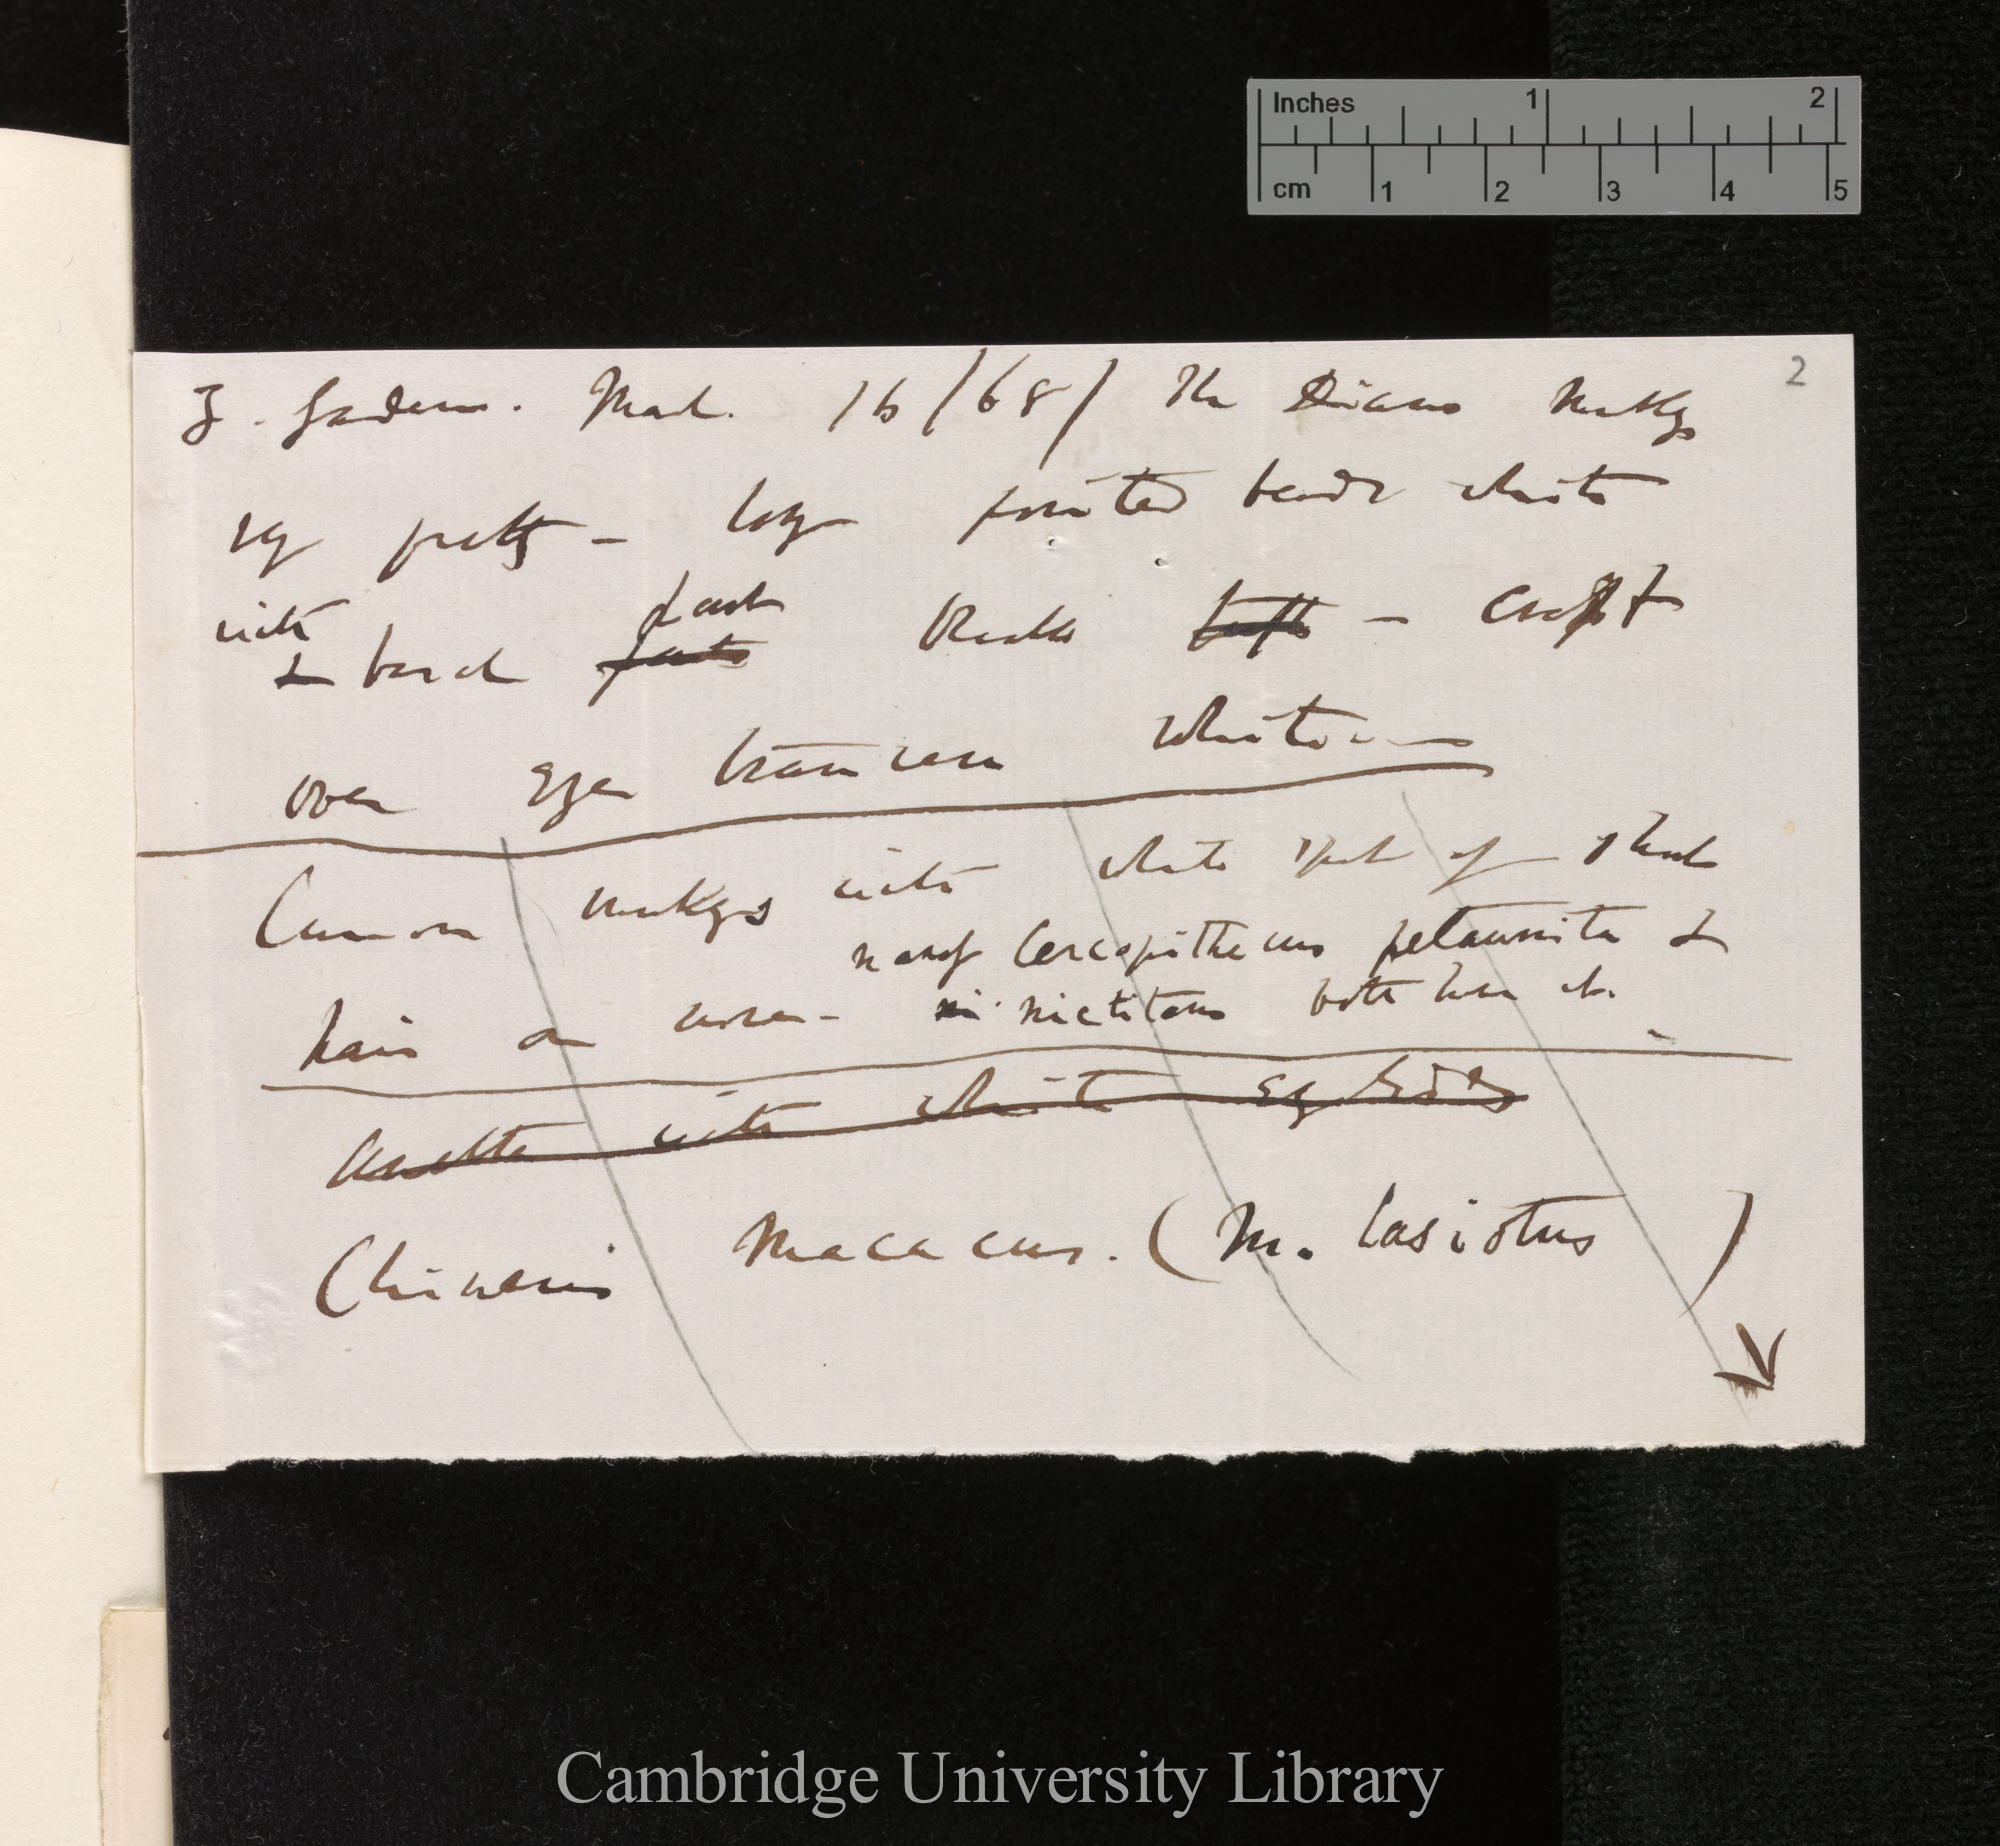 Inches 1 2
cm 1 2 3 4 5
2
Z. Gardens. March. 16/68/ The Diana Monkey
very pretty — long pointed beard white
with
& base dark black — crest
over eyes transverse white —
Common monkeys with white spot of short
hair on nose — many Cercopithecus petaurista &
nictitans both have it.
Another with white eye lids
Chinese Macacus. (M. lasiotus )
Cambridge University Library